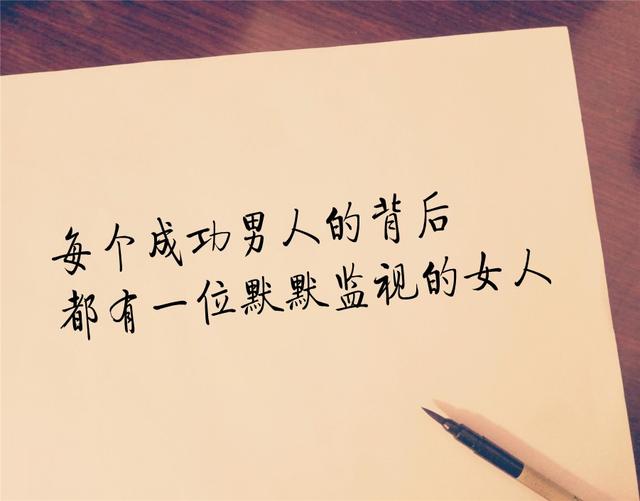 每个成功男人的背后
都有一位默默监视的女人